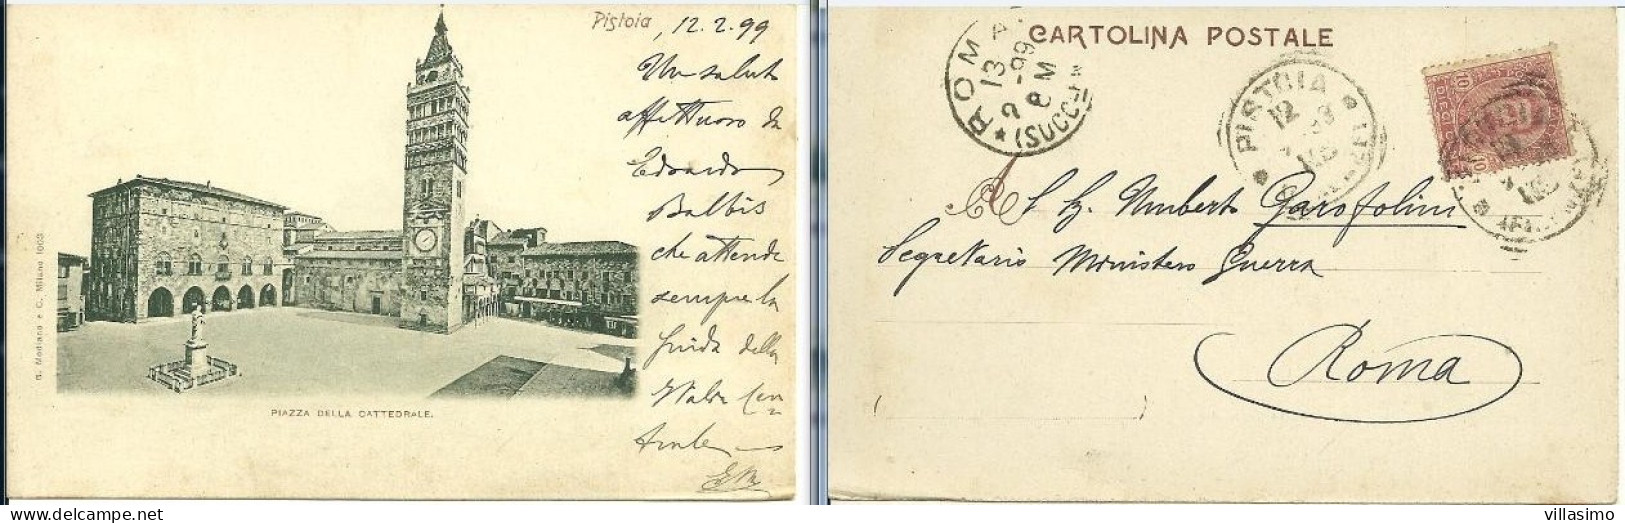 Pistoia
, 12. 2. 99
Un saluto
affettuoso da
Edoardo
Balbis
che attende
sempre la
guida della
G. Modiano e C. Milano 1003
PIAZZA DELLA CATTEDRALE.
CARTOLINA POSTALE
ROMA
13
2 - 99
8 M
* (SUCC
PISTOIA
12
Umberto Garofolini
Segretario Ministero Guerra
Roma
DIECI
10
www.delcampe.net
villasimo